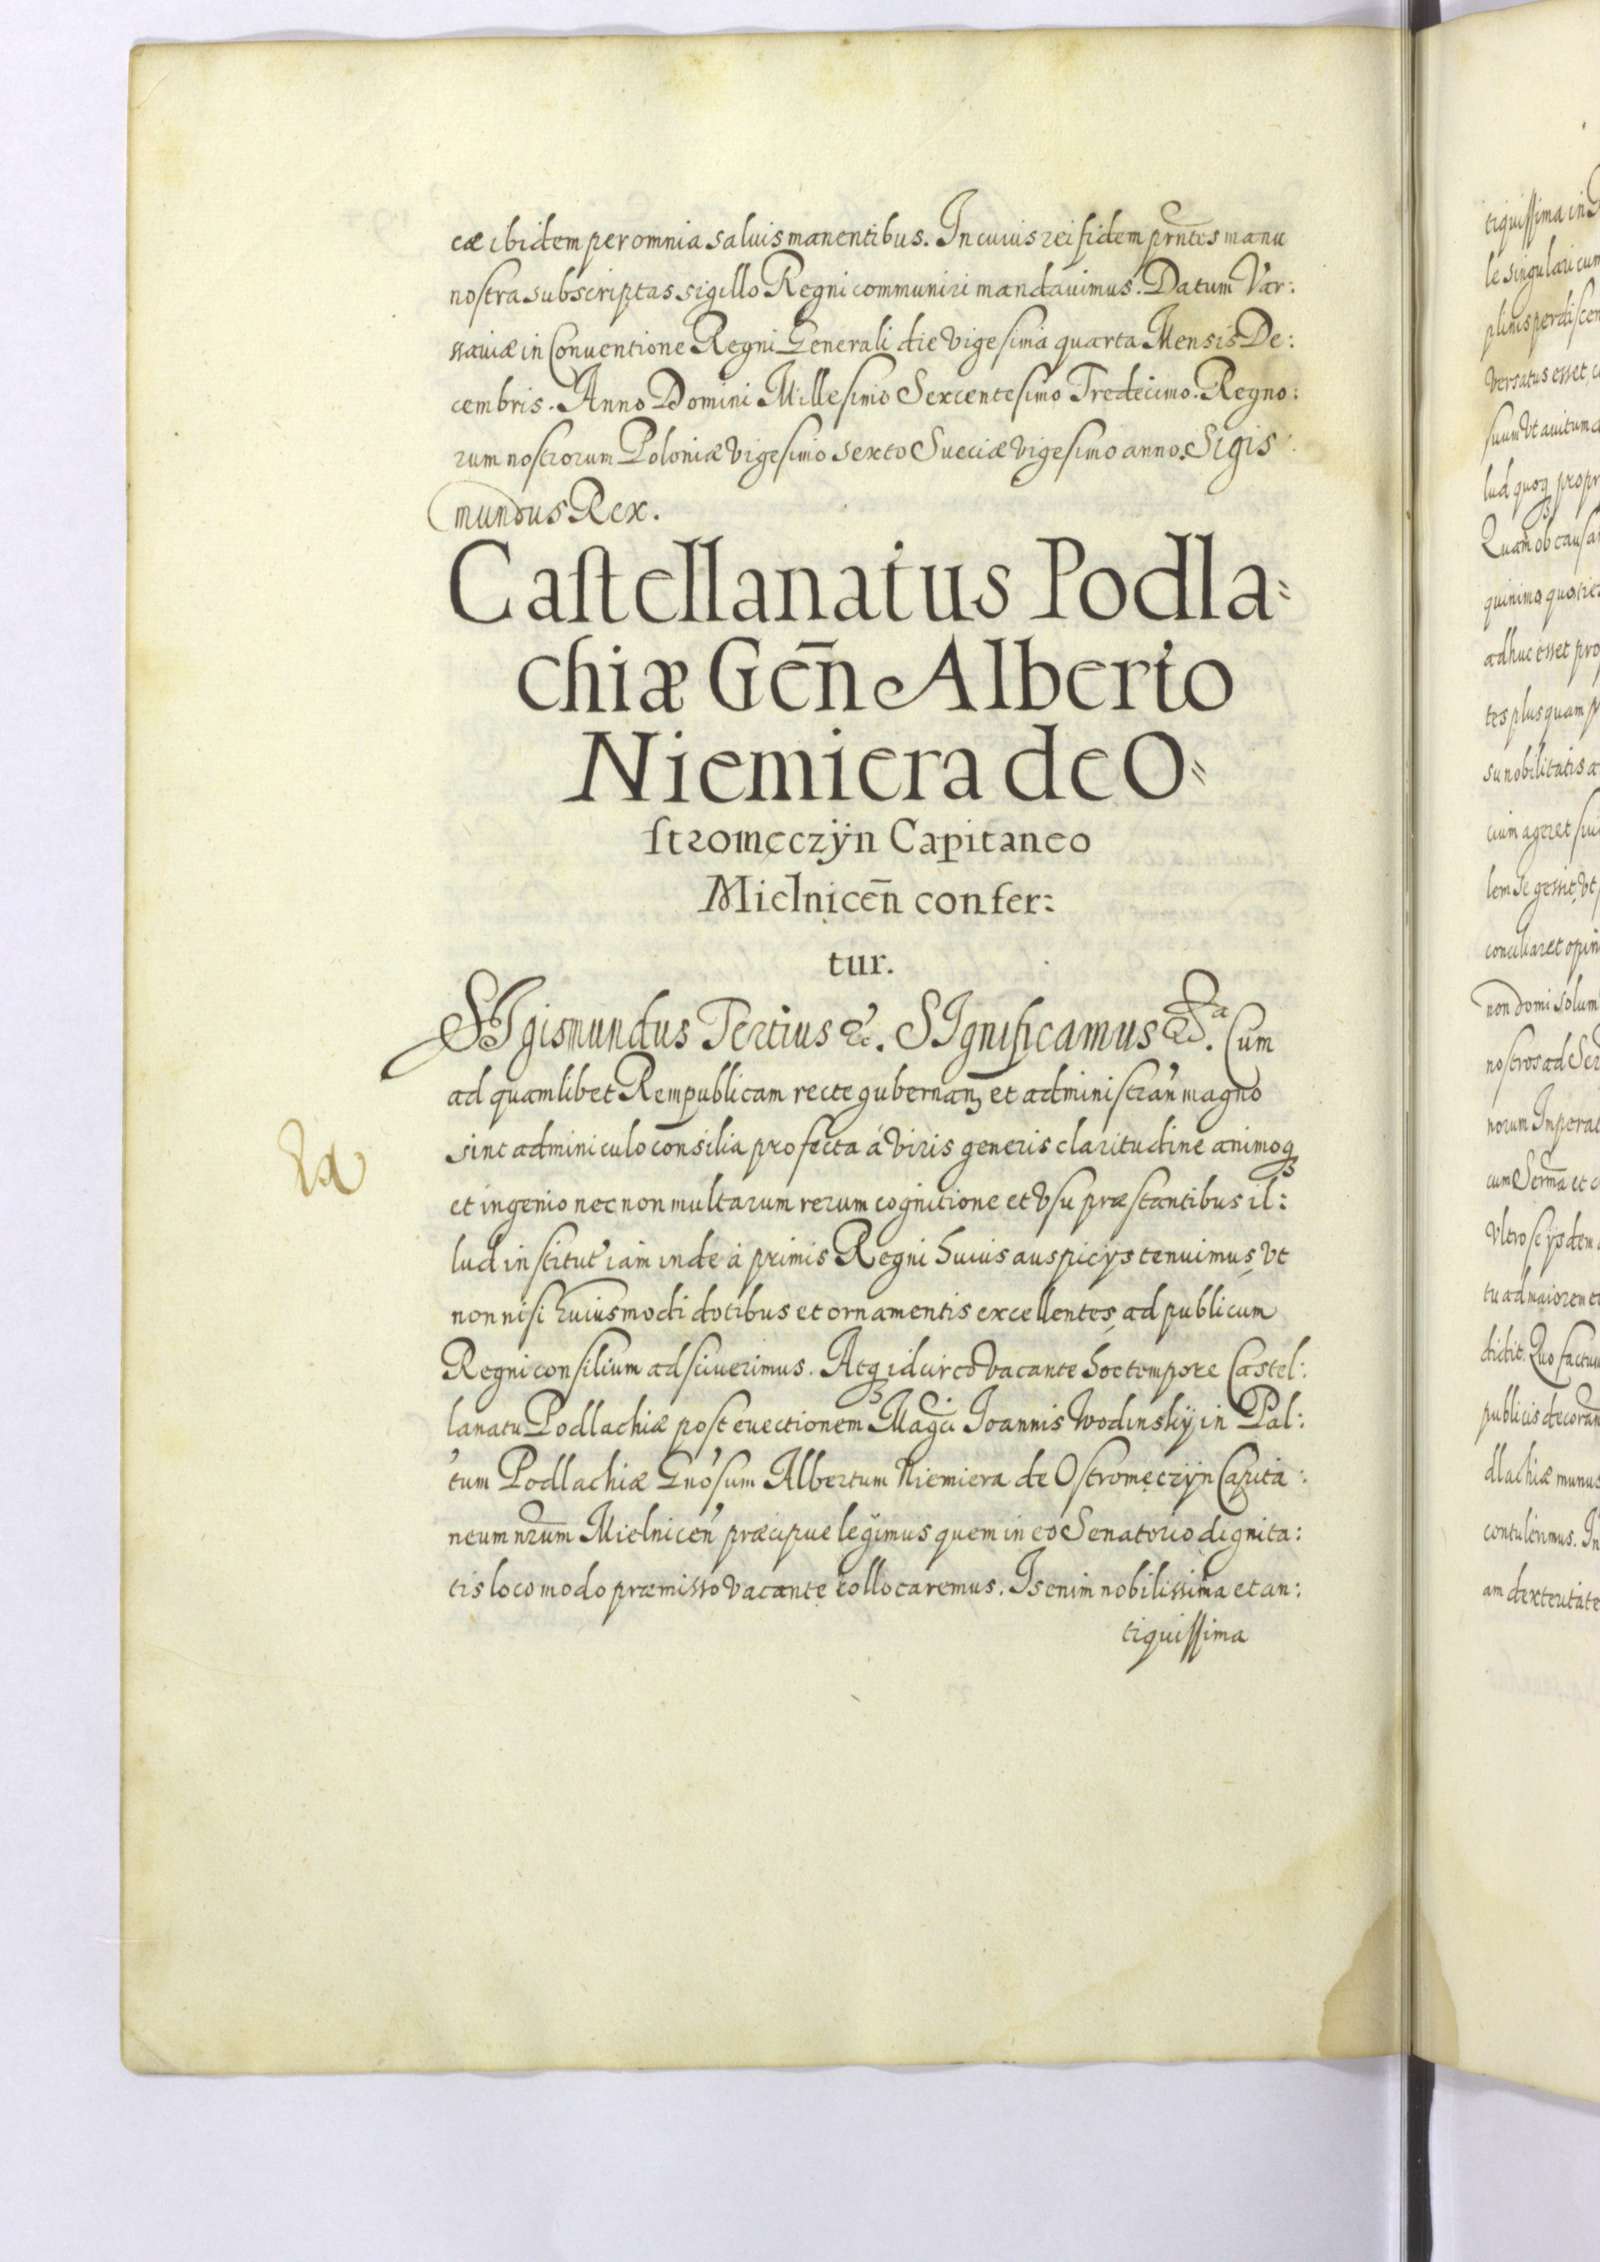 cæ ibidem per omnia saluis manentibus. In cuius rei fidem pr̃ntes manu
nostra subscriptas sigillo Regni communiri mandauimus. Datum Var:
sauiæ in Conuentione Regni Generali die vigesima quarta Mensis De:
cembris. Anno Domini Millesimo Sexcentesimo Tredecimo. Regno:
rum nostrorum Poloniæ vigesimo sexto Sueciæ vigesimo anno. Sigis
mundus Rex.
Castellanatus Podla=
chiæ Gen̄ Alberto
Niemiera de O=
stromęczÿn Capitaneo
Mielnicen̄ confer:
tur.
SIgismundus Tertius &c. SIgnificamus &c. Cum
ad quamlibet Rempublicam recte gubernanꝫ et administran̄ magno
sint adminiculo consilia profecta á viris generis claritudine animoqꝫ
et ingenio nec non multarum rerum cognitione et vsu præstantibus il:
lud institut' iam inde à primis Regni huius auspicijs tenuimus, vt
non nisi huiusmodi dotibus et ornamentis excellentes, ad publicum
Regni consilium adsciuerimus. Atqꝫ idcirco vacante hoc tempore Castel:
lanatu Podlachiæ post euectionem Magci Joannis Wodinskÿ in Pal:
tum Podlachiæ Gnosum Albertum Niemiera de OstromęczÿnCapita:
neum nrũm Mielnicen' præcipue legimus quem in eo Senatorio dignita:
tis loco modo præmisso vacante collocaremus. Is enim nobilissima et an:
tiquissima
tiquissima in
le singulari cum
versatus esset,
suum vt auitum
lud quoqꝫ
Quam ob causa
adhuc esset
tes plus quam
su nobilitatis
cium ageret
lem se gessit, vt
conciliaret
non domi solum
nostros ad
norum
cum Serm̃a et
tu ad maiorem
didit. Quo
publicis
dlachiæ munus
contulerimus. In
am dexteritate